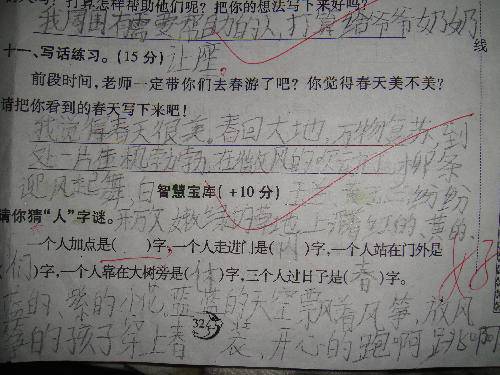 打算怎样帮助他们呢？把你的想法写下来好吗？
我周围有需要帮助的人，打算给爷爷奶奶
让座。
十一、写话练习。（15分）
线
前段时间，老师一定带你们去春游了吧？你觉得春天美不美？
请把你看到的春天写下来吧！
我觉得春天很美。春回大地，万物复苏，到
处一片生机勃勃，在微风的吹动下，柳条
迎风起舞，白
智慧宝库（+10分）
纷纷
猜你猜“人”字谜。
地上
的、黄的、
一个人加点是（ ）字，一个人走进门是（内）字，一个人站在门外是
（们）字，一个人靠在大树旁是（休）字，三个人过日子是（春）字。
蓝的、紫的小花，蓝蓝的天空飘着风筝，放风
筝的孩子穿上春装、开心的跑啊跳啊
32
好